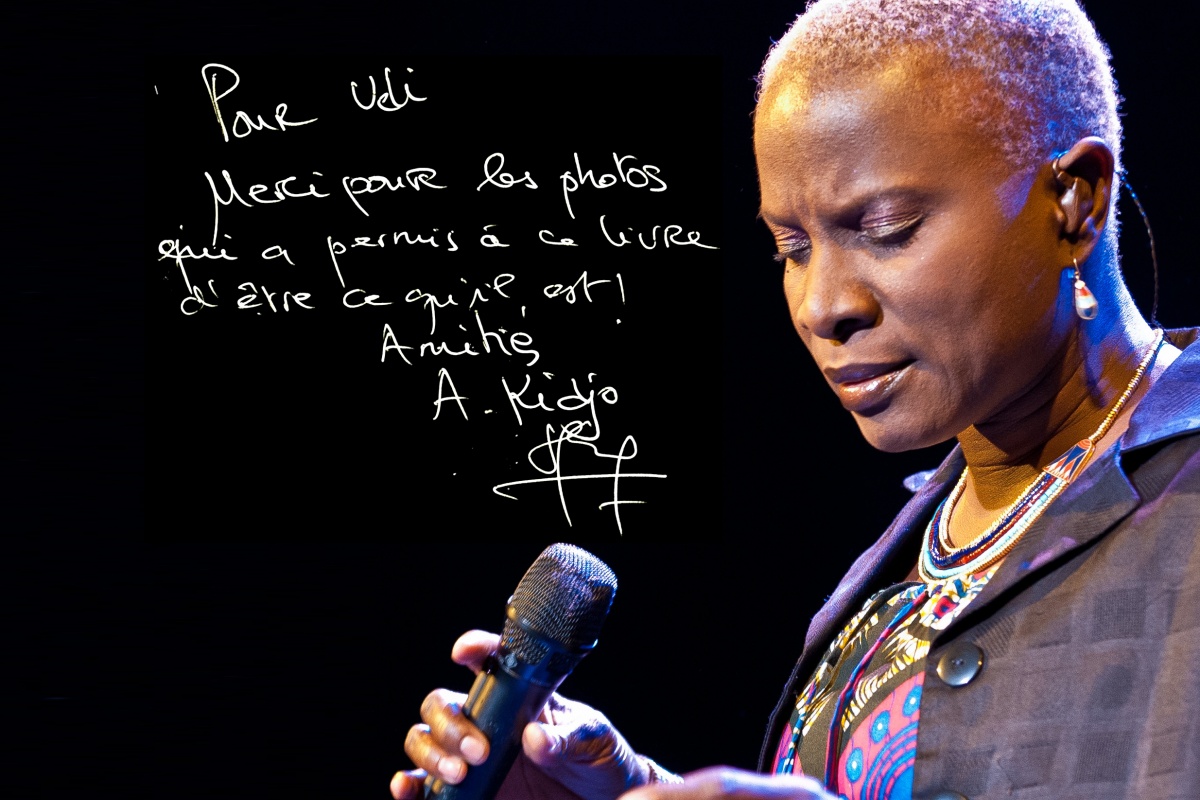 Pour Udi
Merci pour les photos
qui a permis à ce livre
d'être ce qu'il est!
Amitiés
A. Kidjo